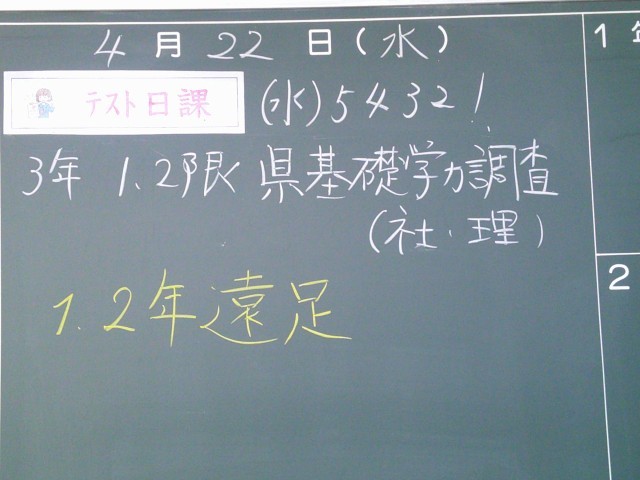 4月22日(水)
テスト日課 (水)54321
3年 1.2限 県基礎学力調査
(社・理)
1.2年遠足
1年
2